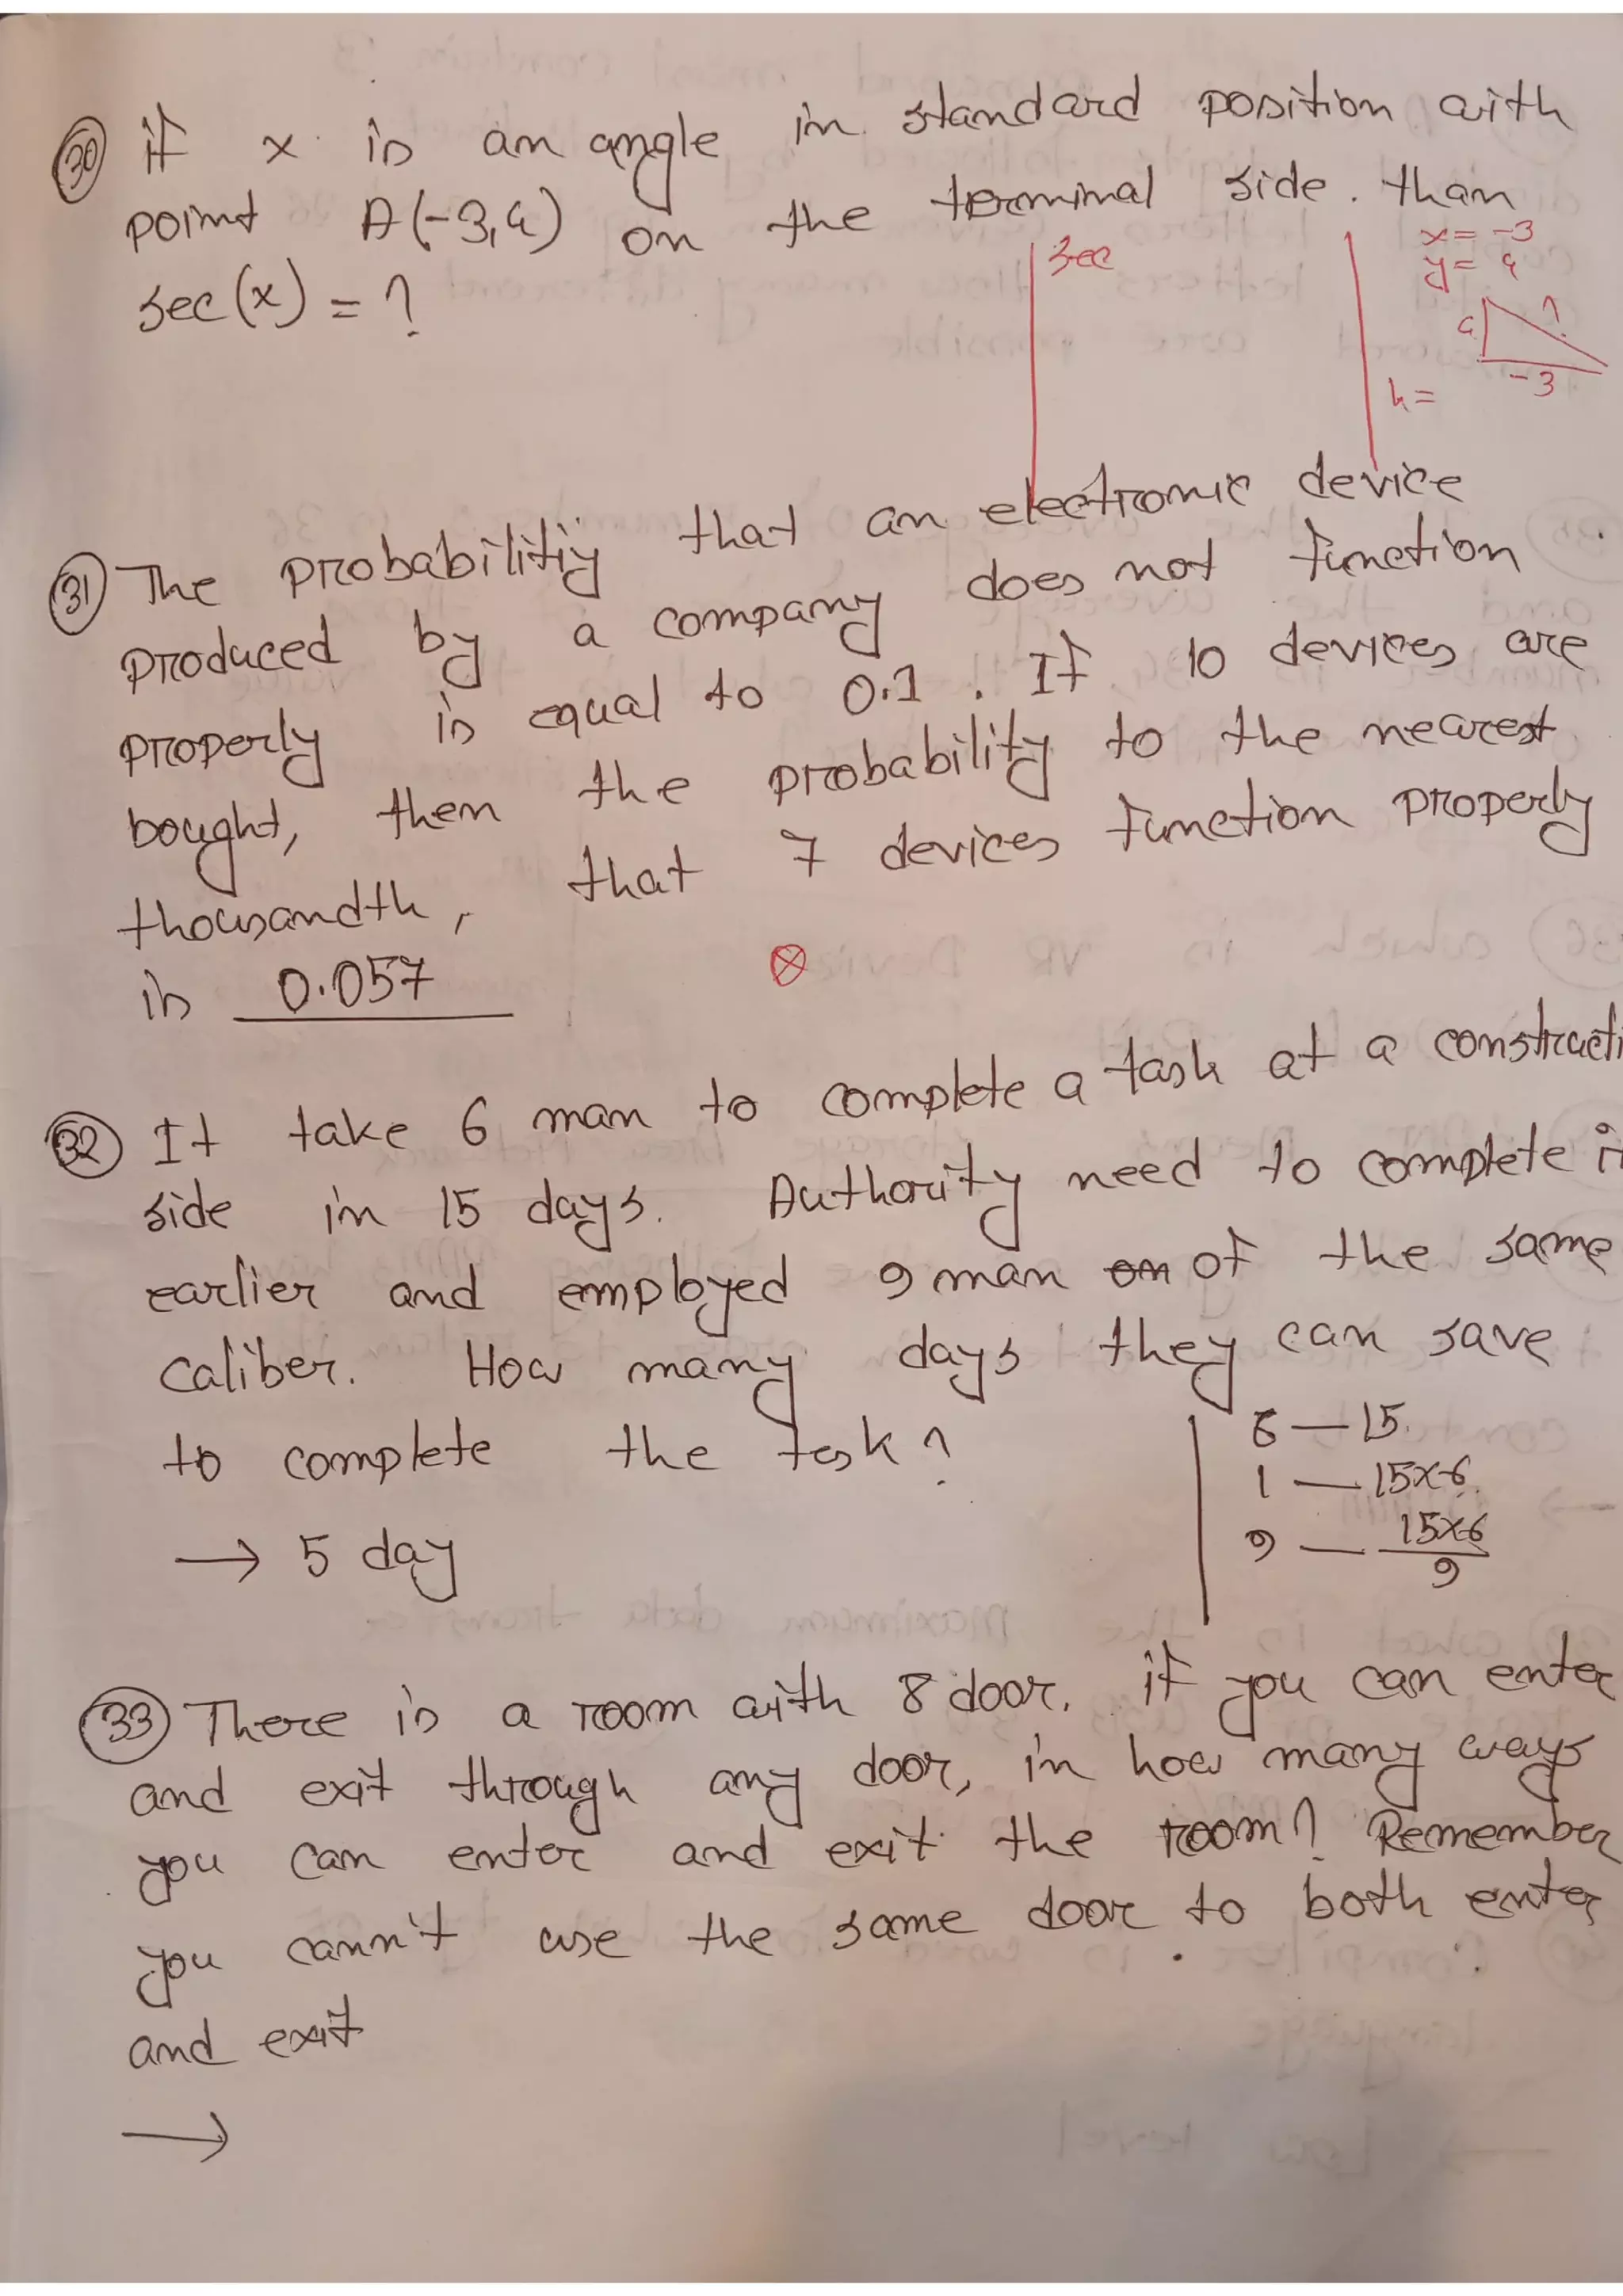 30 if x is an angle in standard position with
point A(-3,4) on the terminal side. than
sec(x) = ?
sec
x = -3
y = 4
4 ?
-3
h =
31 The probabilitiy that an electronic device
produced by a company does not function
properly is equal to 0.1. If 10 devices are
bought, then the probability to the nearest
thousandth, that 7 devices function properly
is 0.057
32 It take 6 man to complete a task at a constructi
side in 15 days. Authority need to complete i
earlier and employed 9 man of the same
caliber. How many days they can save
to complete the task?
6 — 15.
1 — 15x6
9 — 15x6
9
→ 5 day
33 There is a room with 8 door. if you can enter
and exit through any door, in how many ways
you can enter and exit the room? Remember
you cann't use the same door to both enter
and exit
→